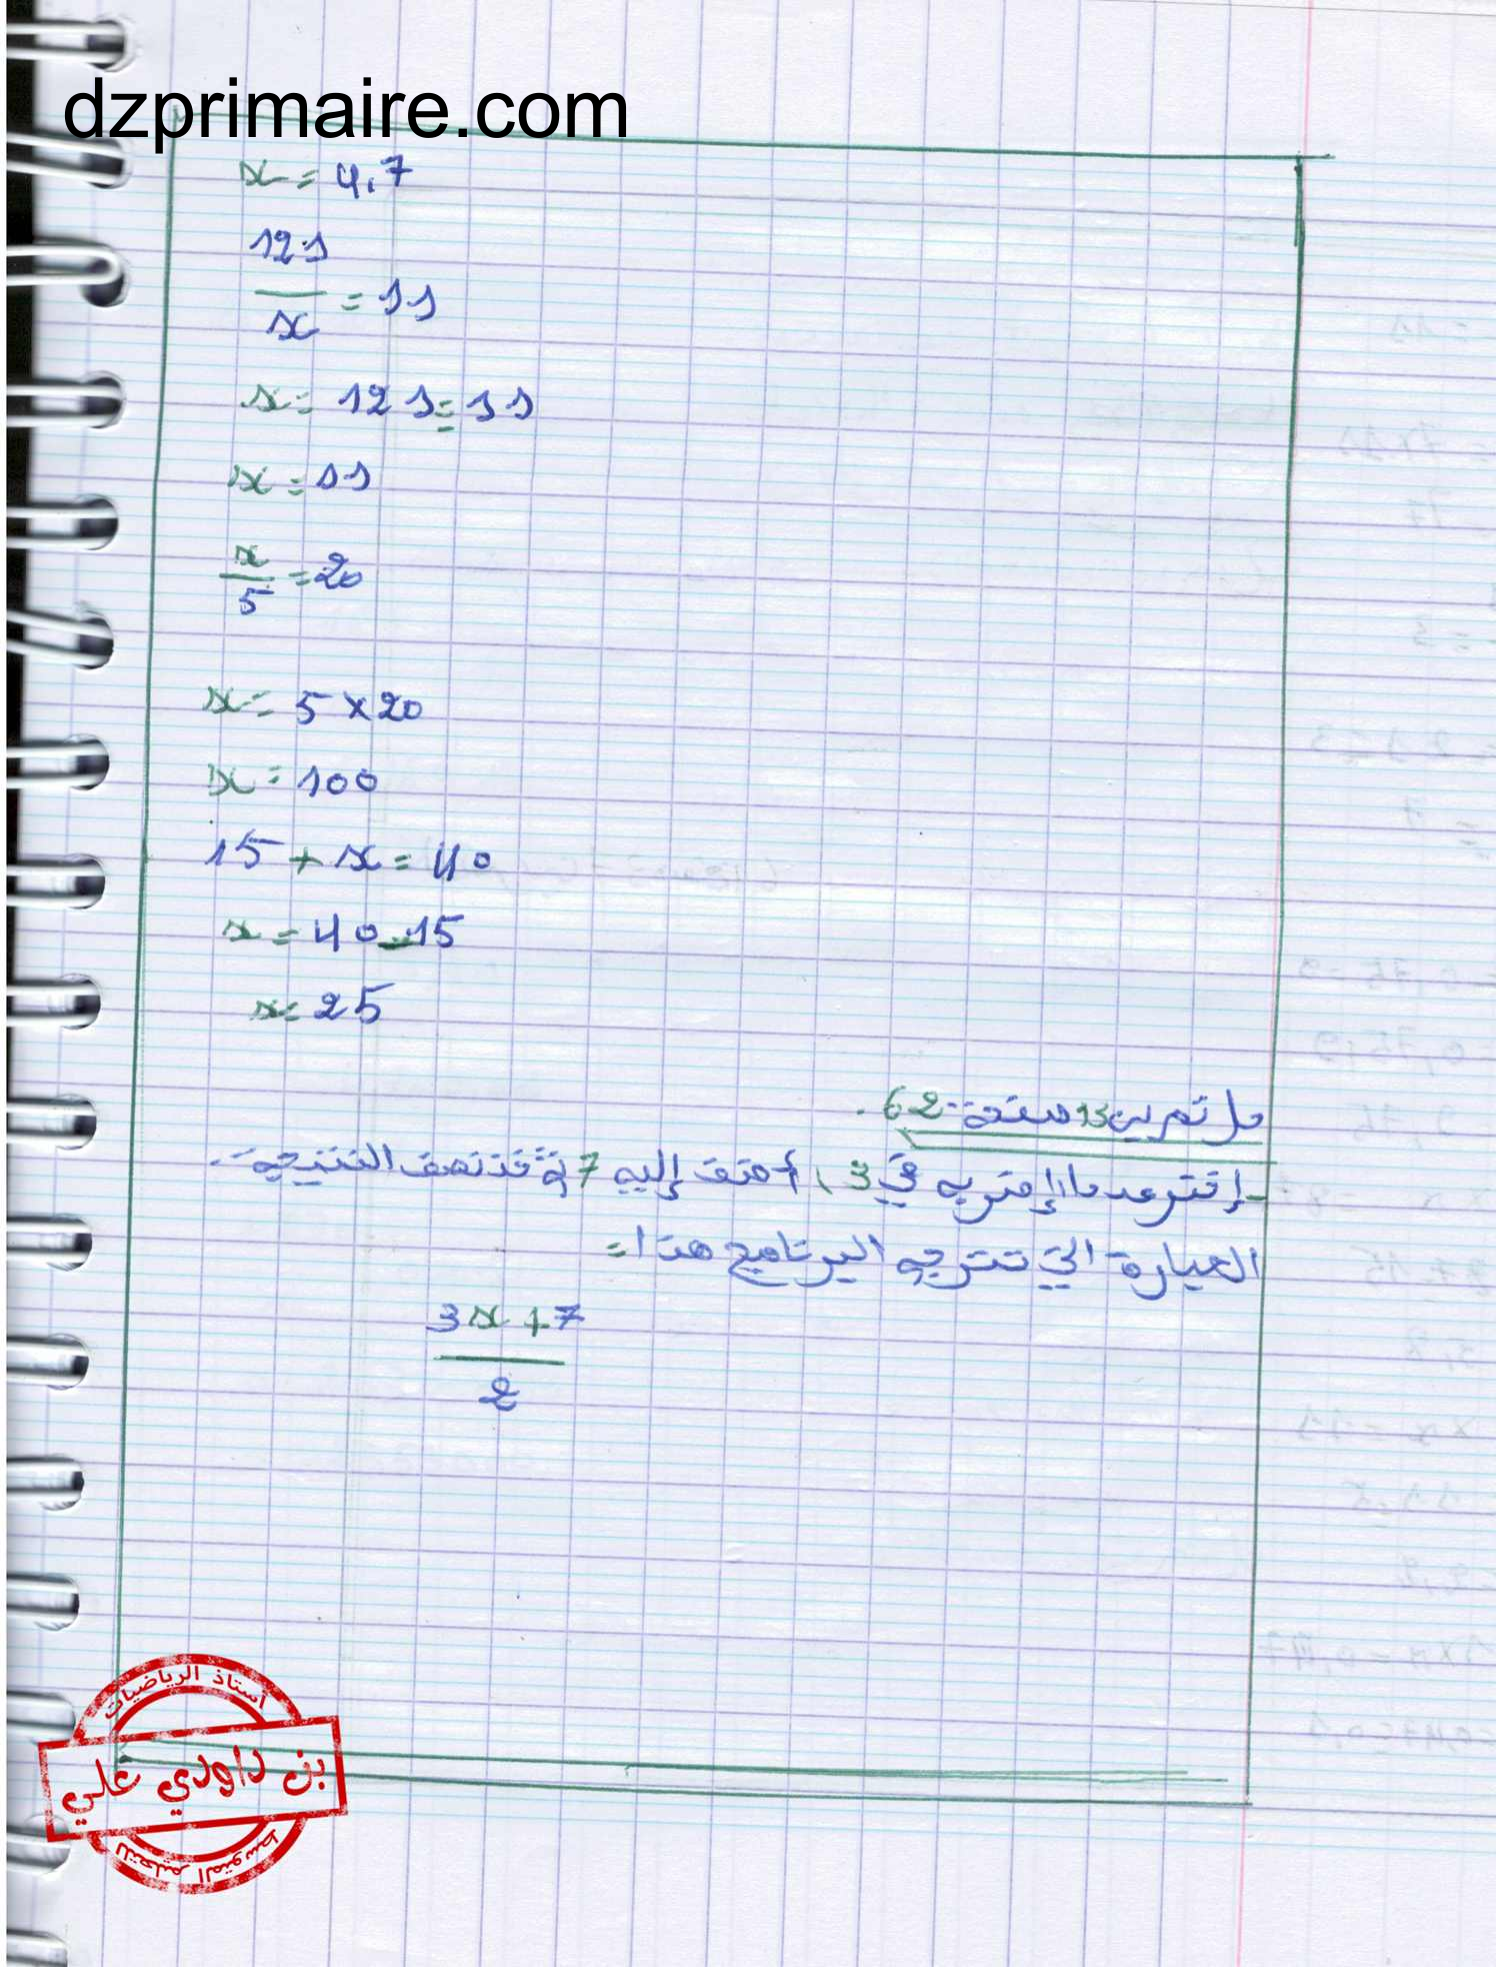 dzprimaire.com
x = 4,7
121
— = 11
x
x = 121 = 11
x = 11
x
— = 20
5
x = 5 × 20
x = 100
15 + x = 40
x = 40 - 15
x = 25
حل تمرين 13 صفحة 62.
- إختر عددا، إضربه في 3، أضف إليه 7 ثم خذ نصف النتيجة.
العبارة التي تترجم البرنامج هذا =
3x + 7
—
2
أستاذ الرياضيات
بن داودي علي
للتعليم المتوسط